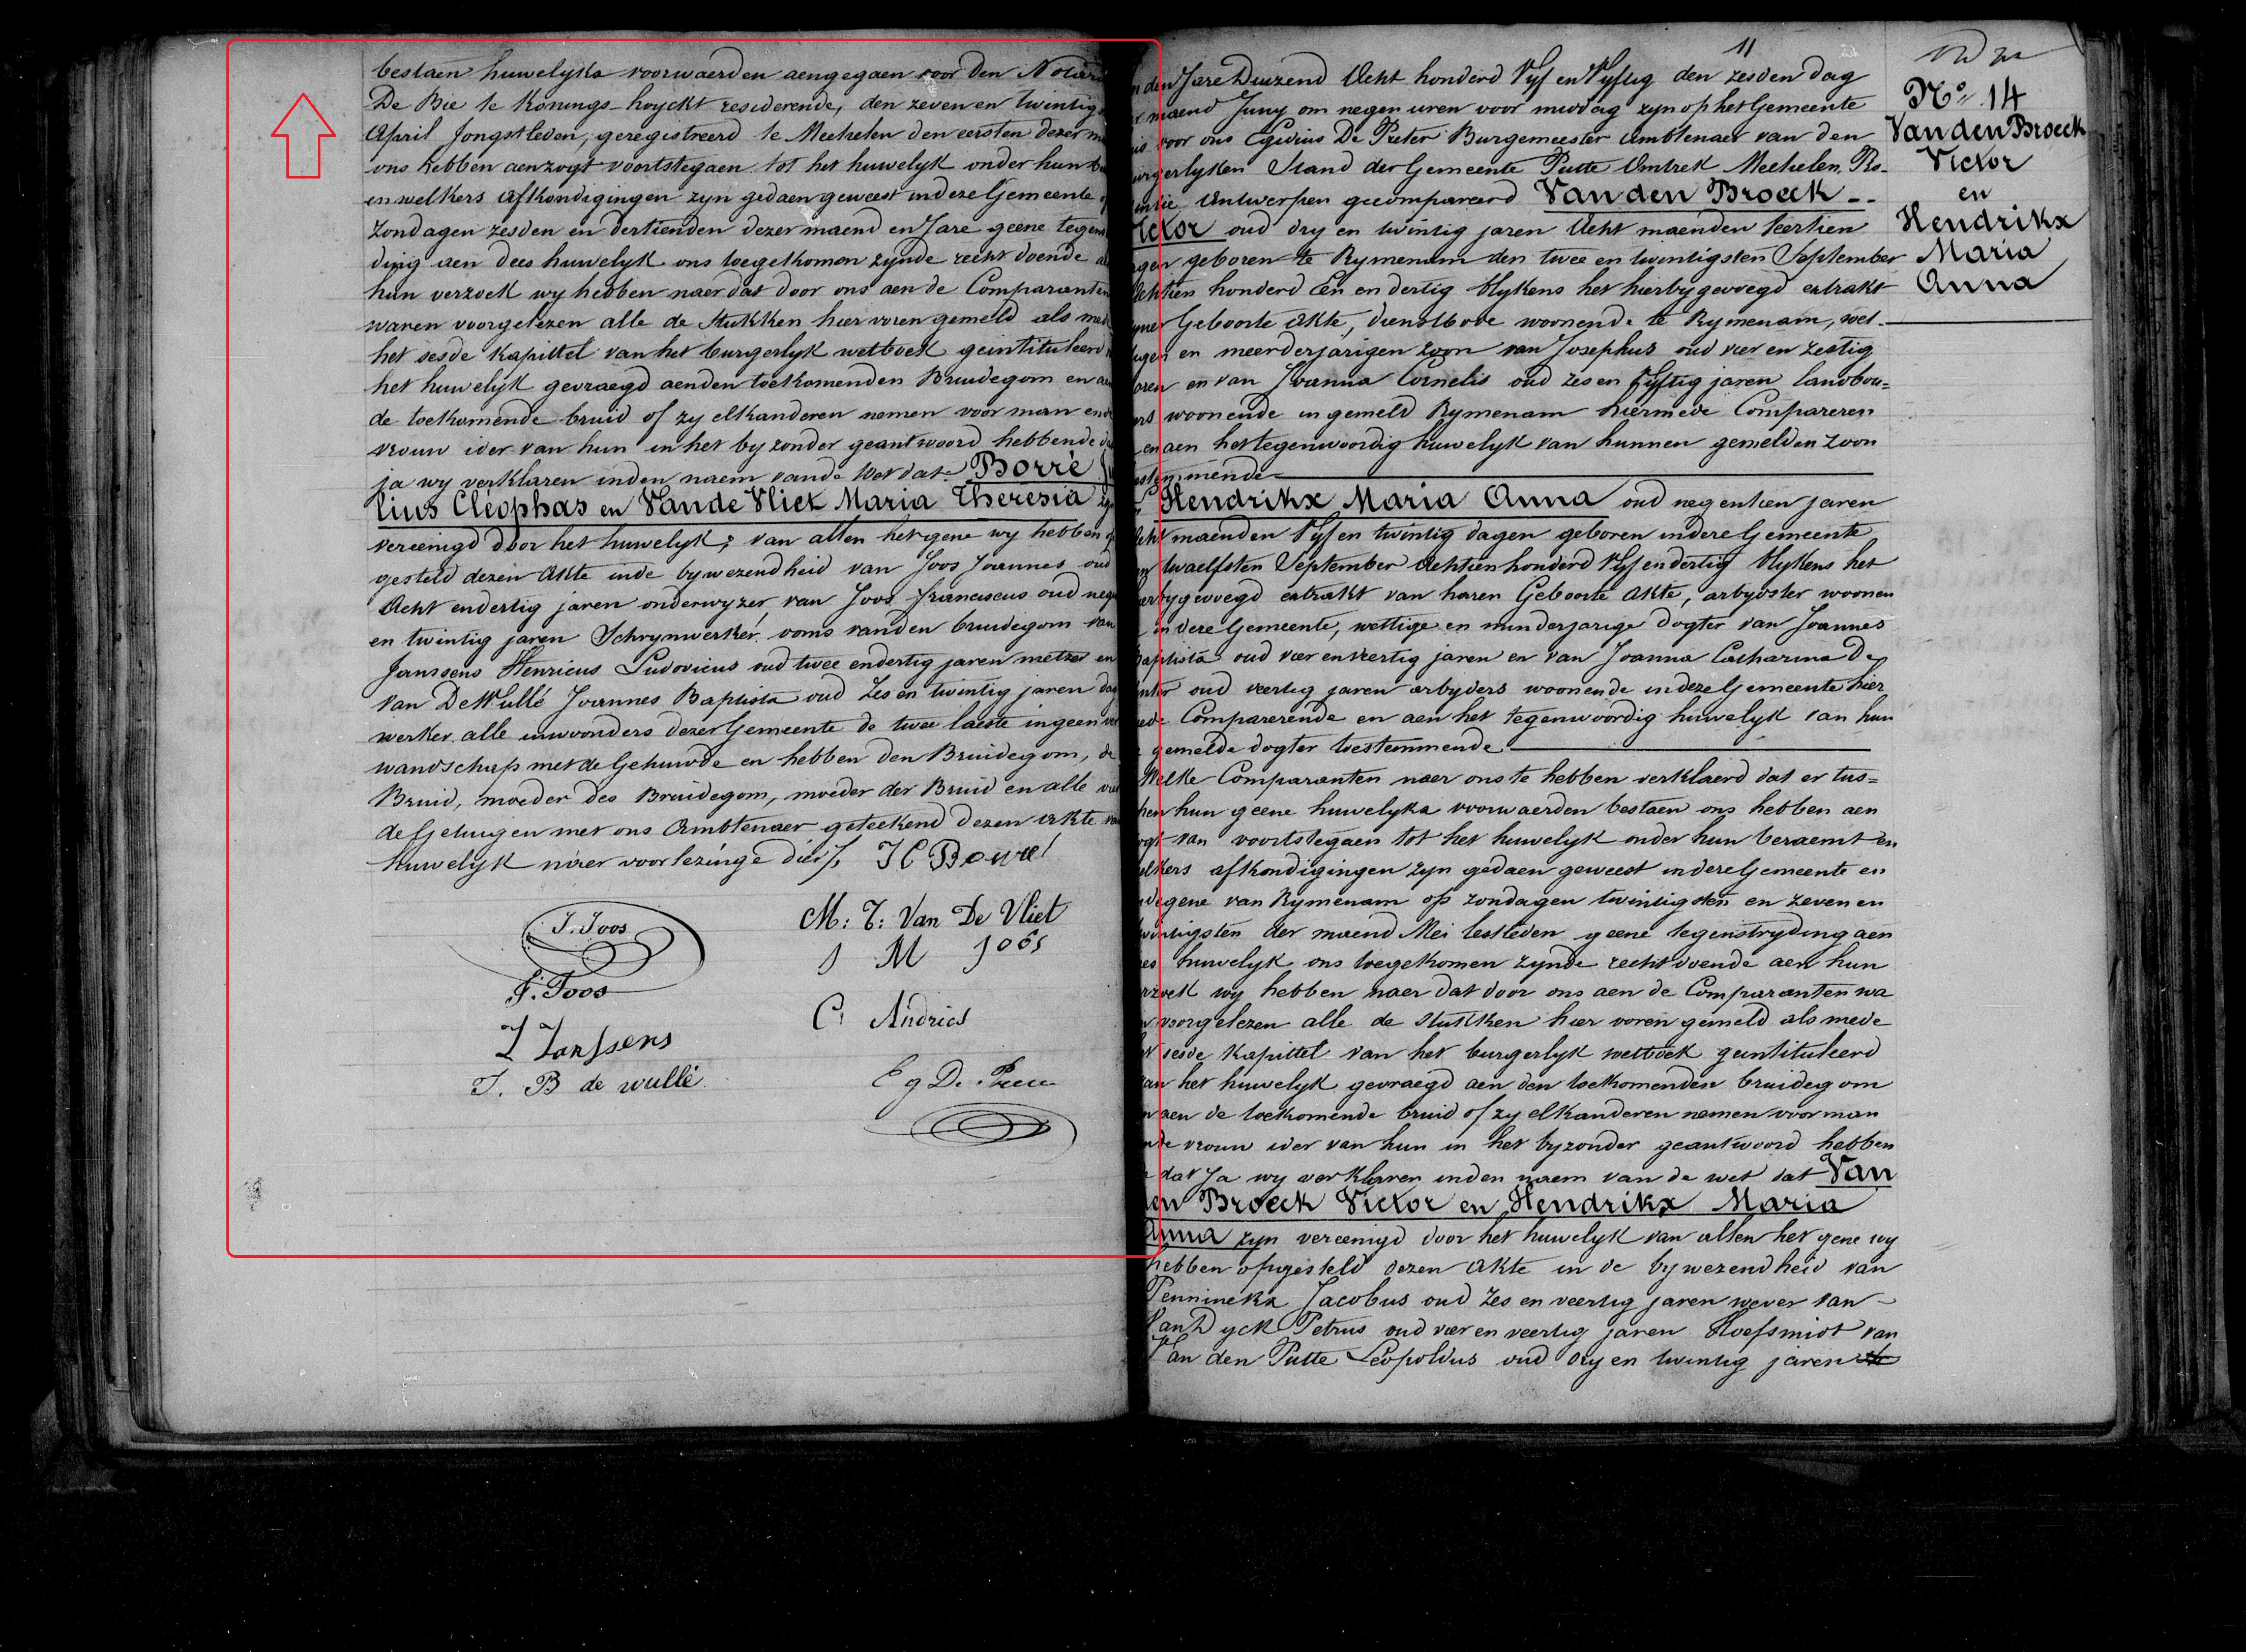 bestaen huwelyks voorwaerden aengegaen voor den Notaris
De Bie te Konings-hoyckt residerende, den zeven en twintigs
April Jongstleden, geregistreerd te Mechelen den eersten dezer
ons hebben aenzogt voortstegaen tot het huwelyk onder hun
en welkers afkondigingen zyn gedaen geweest in deze Gemeente
Zondagen zesden en dertienden dezer maend en Jare geene tegen
ding aen dees huwelyk ons toegekomen zynde recht doende
hun verzoek wy hebben naer dat door ons aen de Comparanten
waren voorgelezen alle de Stukken hier voren gemeld als mede
het sesde kapittel van het burgerlyk wetboek geintituleerd
het huwelyk gevraegd aenden toekomenden Bruidegom en
de toekomende bruid of zy elkanderen nemen voor man en
vrouw ider van hun in het byzonder geantwoord hebbende
ja wy verklaren inden naem vande Wet dat Borré
lius Cléophas en Vande Vliet Maria Theresia
vereenigd door het huwelyk; van allen het gene wy hebben
gesteld dezen Akte inde bywezendheid van Joos Joannes oud
Acht endertig jaren onderwyzer van Joos franciscus oud
en twintig jaren Schrynwerker ooms vanden bruidegom van
Janssens Henricus Ludovicus oud twee endertig jaren metser en
van De Wullé Joannes Baptista oud Zes en twintig jaren
werker alle inwoonders dezer Gemeente de twee laeste ingeen
wandschap met de Gehuwde en hebben den Bruidegom, de
Bruid, moeder des Bruidegom, moeder der Bruid en alle
de Getuigen met ons Ambtenaer geteekend dezen akte van
huwelyk naer voorlezinge dies/.
J. Joos
M: T: Van De Vliet
J M Joos
F. Joos
C Andries
Janssens
J. B de wullé
Eg De
11
n den Jare Duizend Acht honderd Vyf en Vyftig den zesden dag
maend Juny om negen uren voor middag zyn op het Gemeente
voor ons Egidius De Pieter Burgemeester Ambtenaer van den
urgerlyken Stand der Gemeente Putte Omtrek Mechelen, Pro-
Antwerpen gecompareerd Van den Broeck --
ictor oud dry en twintig jaren Acht maenden veertien
agen geboren te Rymenam den twee en twintigsten September
chtien honderd Een en dertig blykens het hierbygevoegd extrakt
Geboorte akte, dienstbode woonende te Rymenam, wet-
en meerderjarigen zoon van Josephus oud vier en zestig
aren en van Joanna Cornelis oud zes en fyftig jaren landbou=
ers woonende in gemeld Rymenam hiermede Compareren
en aen het tegenwoordig huwelyk van hunnen gemelden zoon
estemmende
Hendrikx Maria Anna oud negentien jaren
cht maenden Vyf en twintig dagen geboren in deze Gemeente
en twaelfsten September Achtien honderd Vyf en dertig blykens het
erbygevoegd extrakt van haren Geboorte Akte, arbydster woonen
in deze Gemeente, wettige en minderjarige dogter van Joannes
aptista oud vier en veertig jaren en van Joanna Catharina De
oud veertig jaren arbyders woonende in deze Gemeente hier
mede Comparerende en aen het tegenwoordig huwelyk van hun
gemelde dogter toestemmende
Welke Comparanten naer ons te hebben verklaerd dat er tus=
hen hun geene huwelyks voorwaerden bestaen ons hebben aen
ogt van voortstegaen tot het huwelyk onder hun beraemt en
elkers afkondigingen zyn gedaen geweest in deze Gemeente en
degene van Rymenam op zondagen twintigsten en zeven en
wintigsten der maend Mei lestleden geene tegenstryding aen
ees huwelyk ons toegekomen zynde recht doende aen hun
erzoek wy hebben naer dat door ons aen de Comparanten wa
voorgelezen alle de stukken hier voren gemeld als mede
sesde Kapittel van het burgerlyk wetboek geintituleerd
an het huwelyk gevraegd aen den toekomenden bruidegom
n aen de toekomende bruid of zy elkanderen nemen voor man
nde vrouw ider van hun in het byzonder geantwoord hebben
dat Ja wy verklaren inden naem van de wet dat Van
en Broeck Victor en Hendrikx Maria
Anna zyn vereenigd door het huwelyk van allen het gene wy
hebben opgesteld dezen Akte in de bywezendheid van
Penninckx Jacobus oud Zes en veertig jaren wever van
Van Dyck Petrus oud vier en veertig jaren Hoefsmidt van
Van den Putte Leopoldus oud dry en twintig jaren
No 14
Van den Broeck
Victor
en
Hendrikx
Maria
Anna